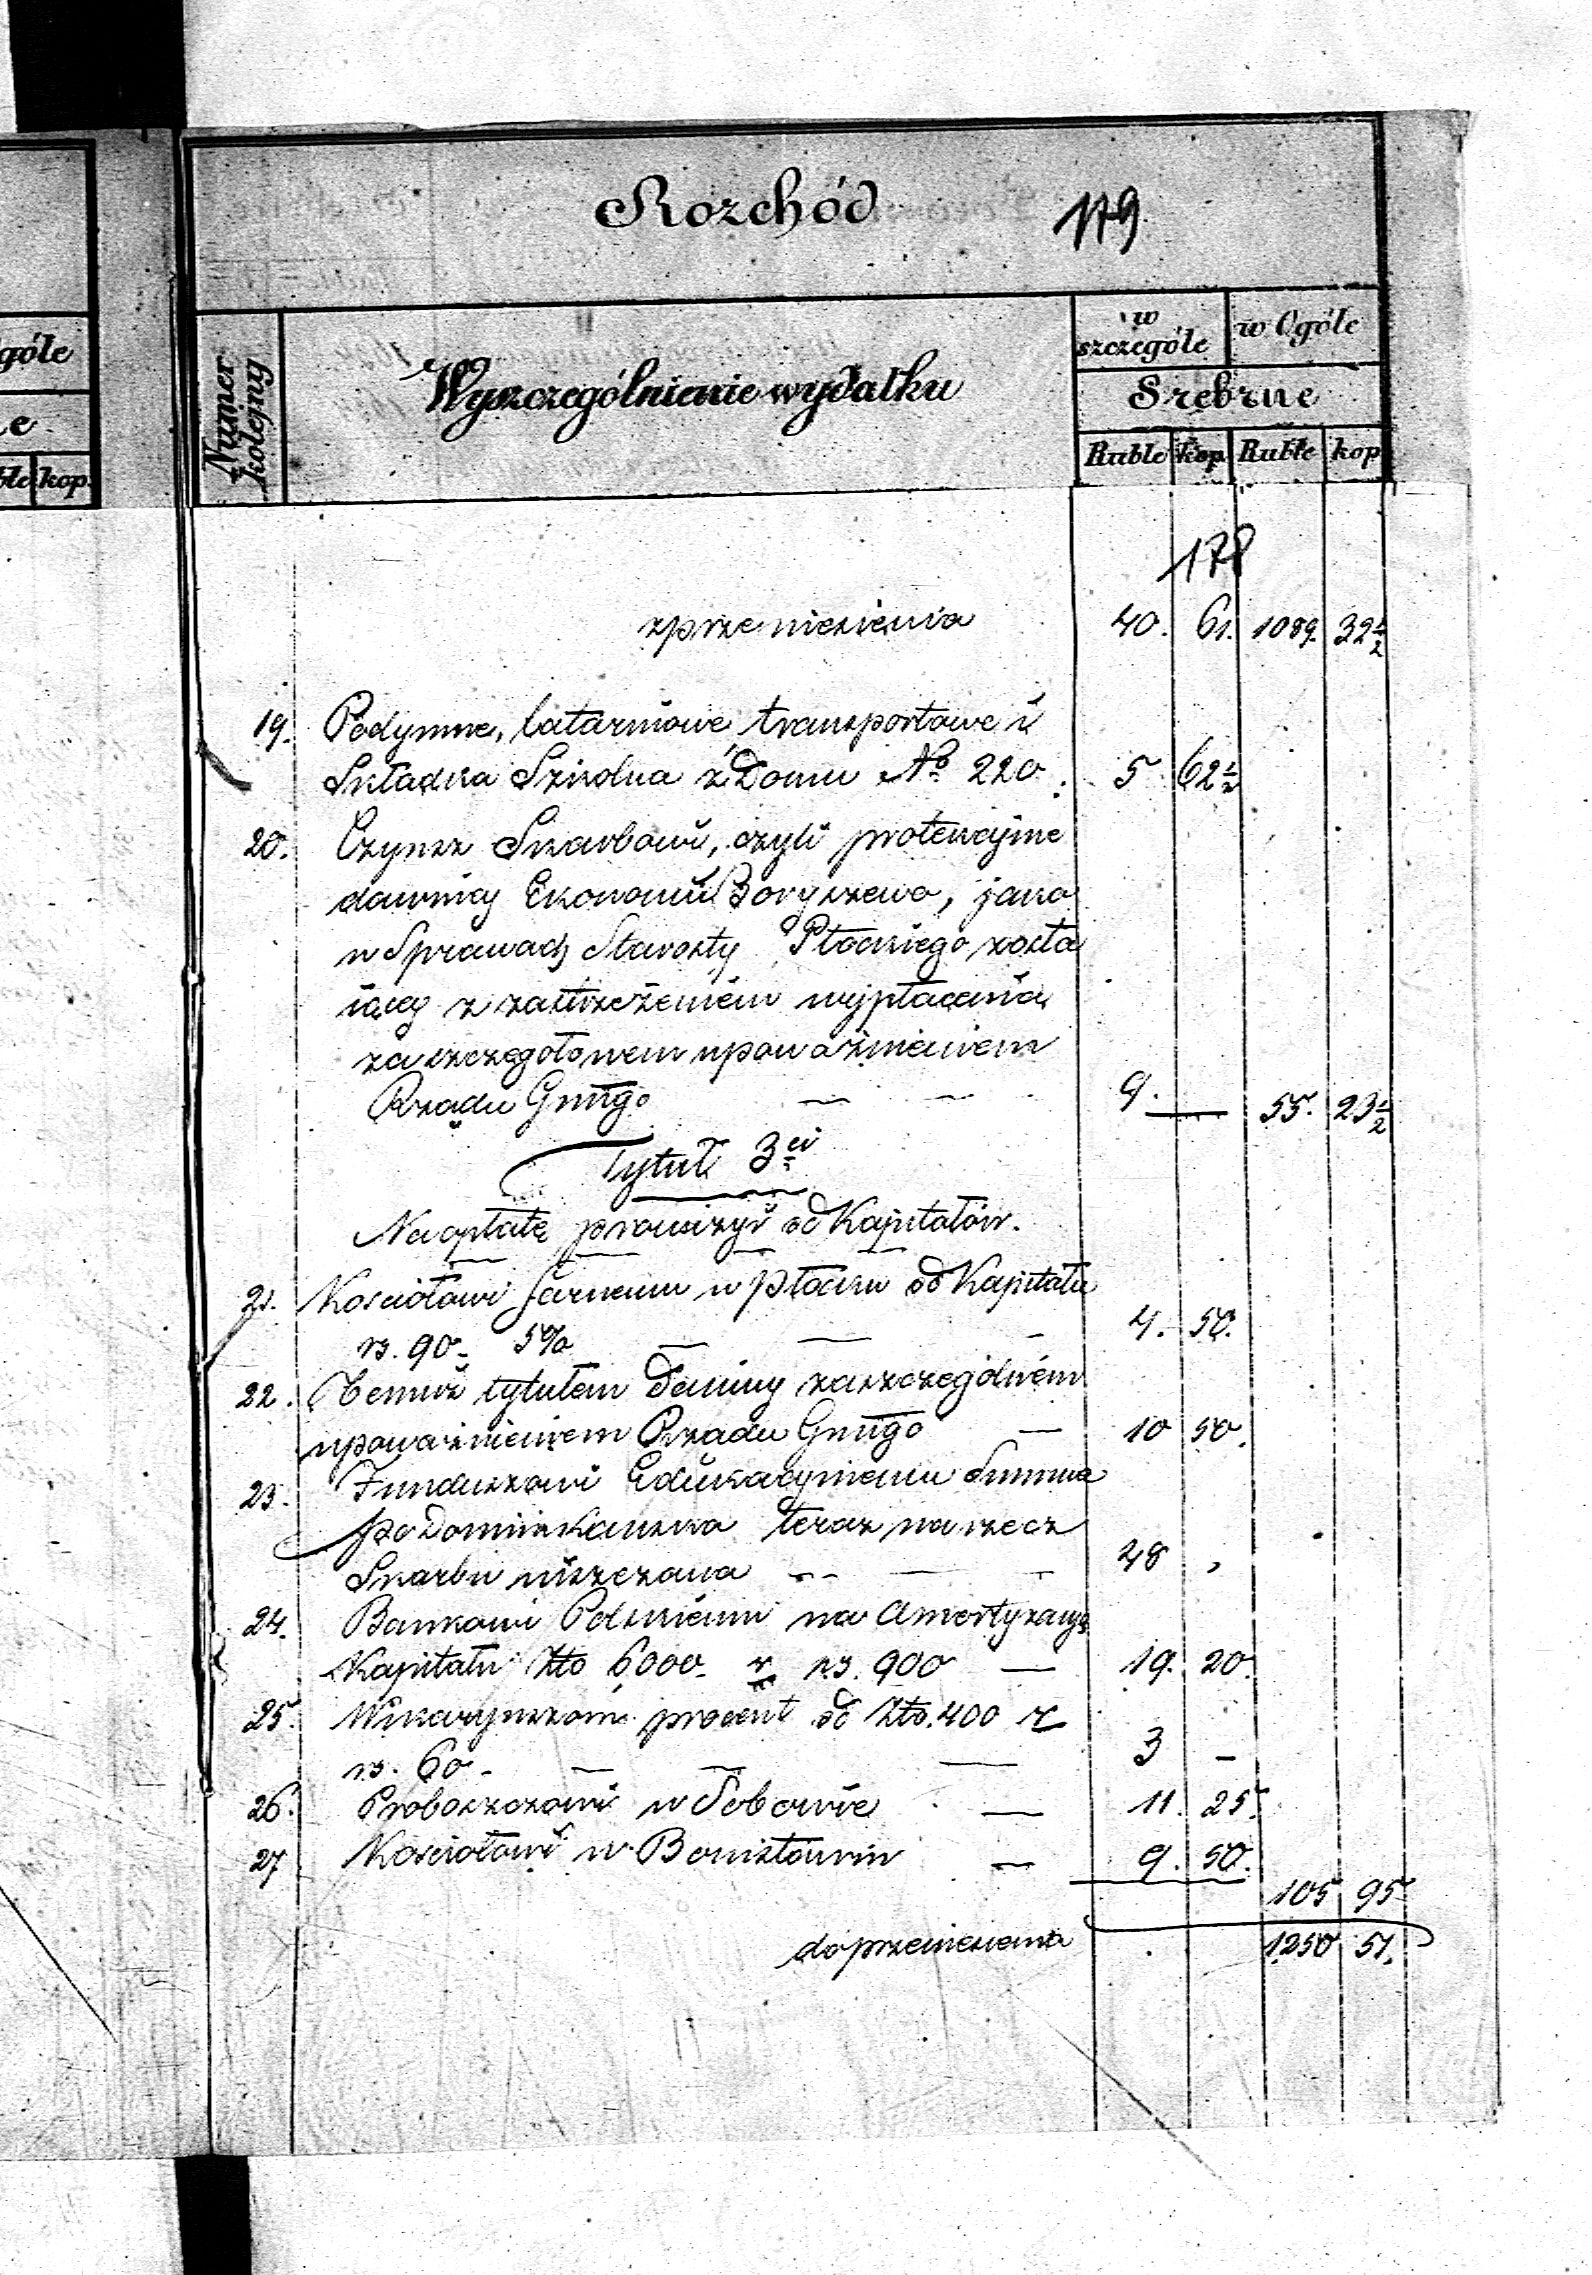 góle
e
ble kop.
Rozchód 179
Numer kolejny
Wyszczególnienie wydatku
w szczególe
w Ogóle
Srebrne
Ruble kop Ruble kop
178
z przeniesienia 40. 61. 1089. 32 1/2
19. Podymne, latarniowe transportowe i
Składka Szkolna z Domu No 220. 5 62 1/2
20. Czynsz Skarbowi, czyli protekcyjne
dawniey Ekonomii Boryszewo, jako
w Sprawach Starosty Płockiego zosta
iącey z zastrzeżeniem wypłacenia
za szczegołowem upoważnieniem
Rządu Gnûgo — — 9. — 55. 23 1/2
Tytuł 3ci
Na opłatę prowizyi od Kapitałów.
21. Kosciołowi farnemu w Płocku od Kapitału
rs. 90 - 5% — — - 4. 50.
22. Temuż tytułem Daniny za szczególném
upoważnieniem Rządu Gnûgo — 10 50.
23. Funduszowi Edukacyinemu Summa
po Dominikańska teraz na rzecz
Skarbu uiszczana - - — - 48 ,
24. Bankowi Polskiemu na Amortyzacyę
Kapitału Złto 6000. r. rs. 900 — 19. 20.
25. Wikaryuszom procent od Złto. 400 r
rs. 60 - — — — 3 -
26. Proboszczowi w Soborwie — 11. 25.
27 Kosciołowi w Bonisławiu — 9. 50.
105 95
do przeniesienia . 1250 51.